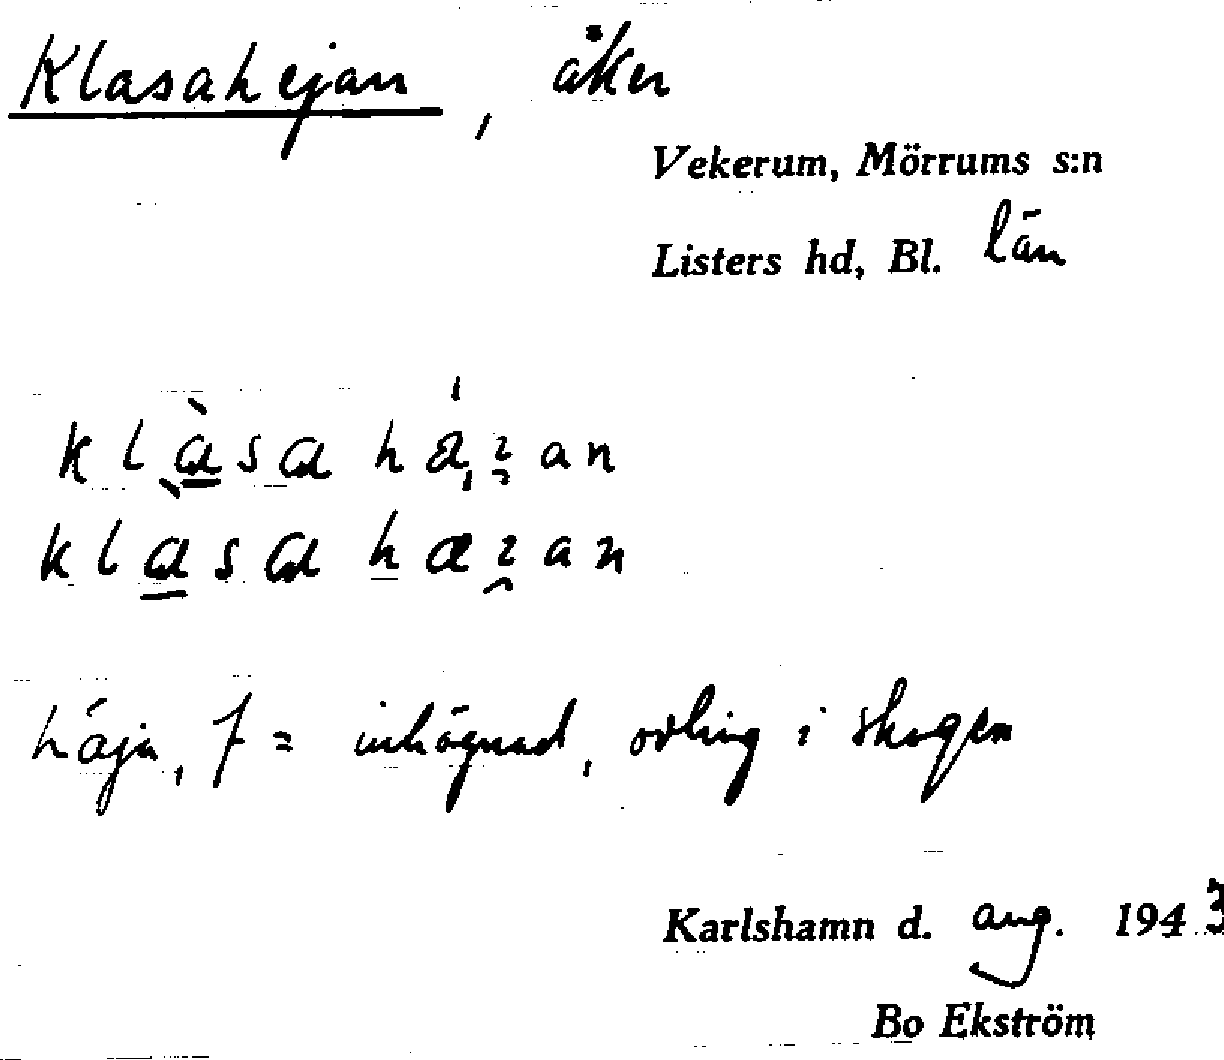 Klasahejan, åker
Vekerum, Mörrums s:n
Listers hd, Bl. län
klàsa házan
klàsa hæzan
häja, f = inhägnad, odling i skogen
Karlshamn d. aug. 1943
Bo Ekström